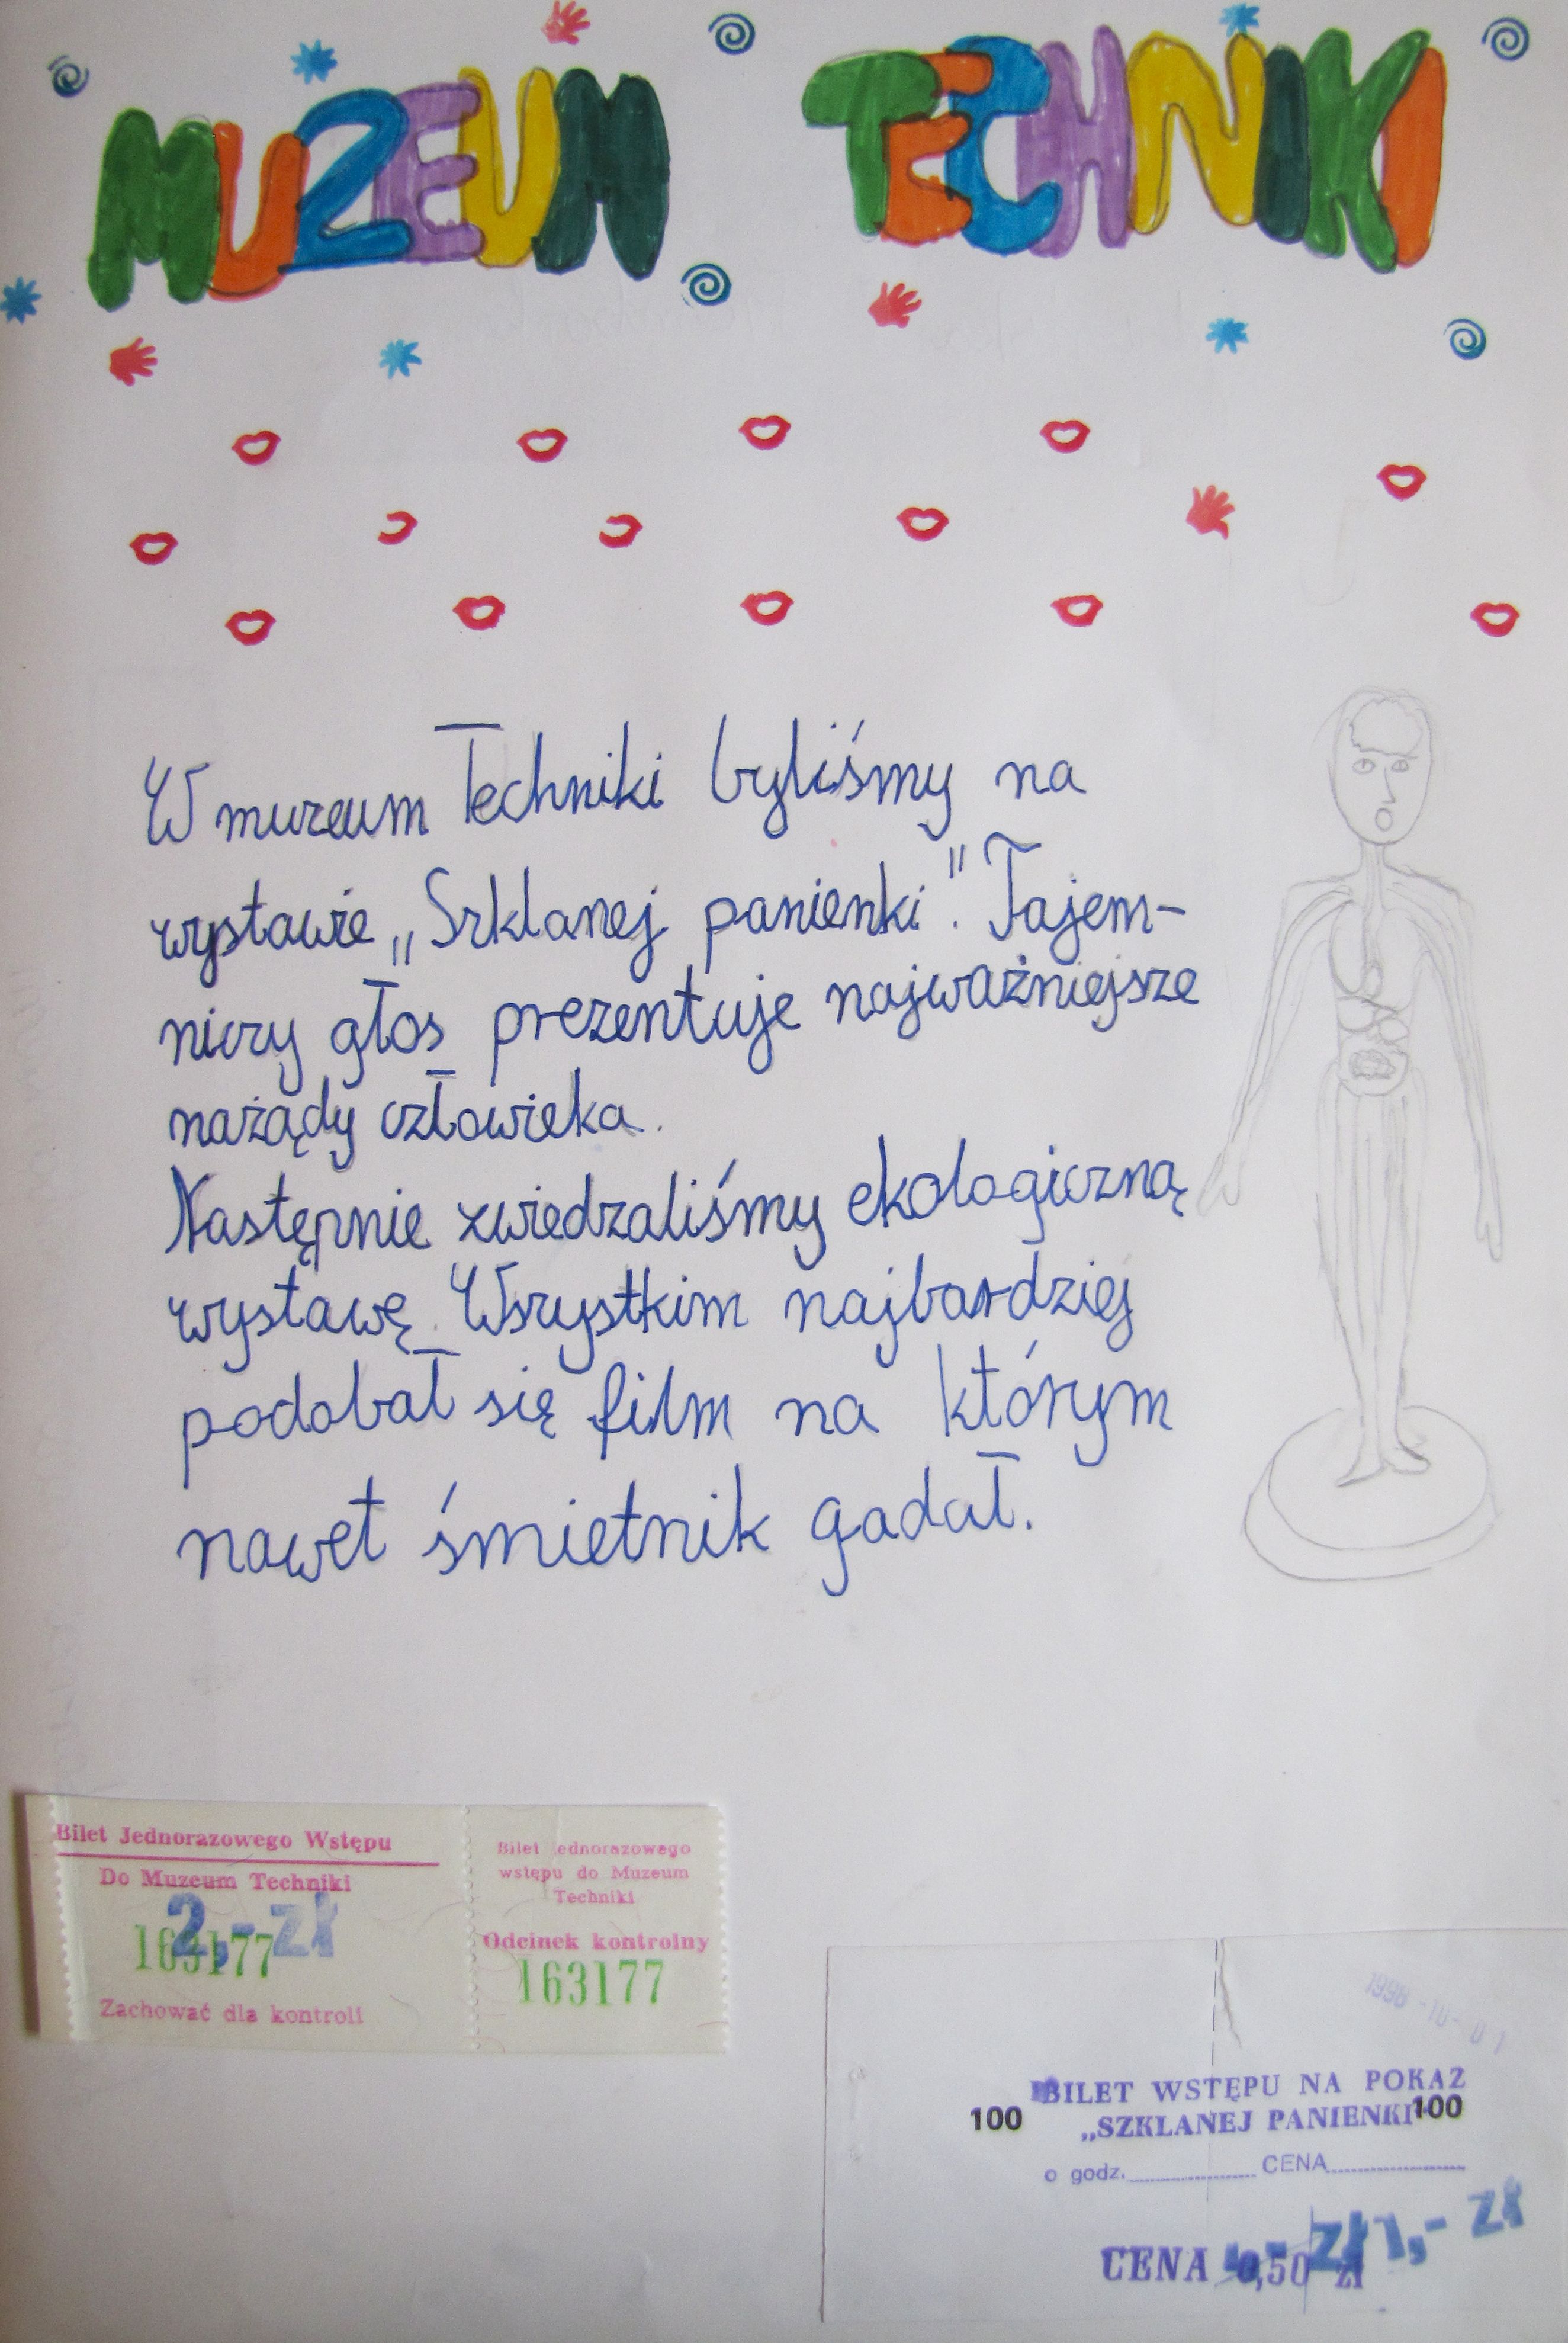 MUZEUM TECHNIKI
W muzeum Techniki byliśmy na
wystawie „Szklanej panienki". Tajem-
niczy głos prezentuje najważniejsze
nażądy człowieka.
Następnie zwiedzaliśmy ekologiczną
wystawę. Wszystkim najbardziej
podobał się film na którym
nawet śmietnik gadał.
Bilet Jednorazowego Wstępu
Do Muzeum Techniki
2,- zł
163177
Zachować dla kontroli
Bilet jednorazowego
wstępu do Muzeum
Techniki
Odcinek kontrolny
163177
1998-10-01
BILET WSTĘPU NA POKAZ
100 „SZKLANEJ PANIENKI" 100
o godz. CENA
1,- zł
CENA 0,50 zł